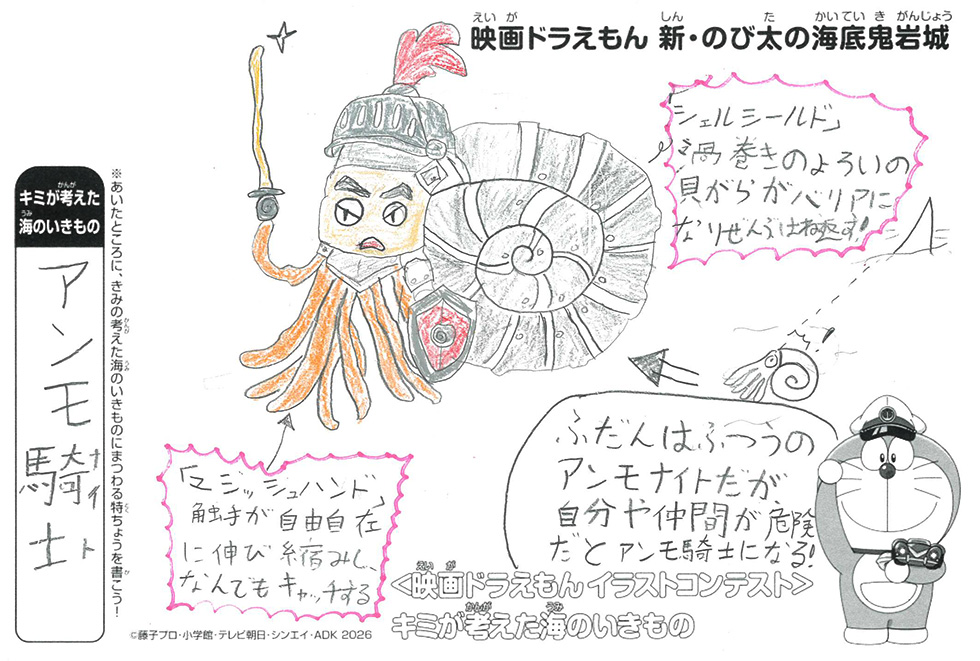 映画ドラえもん 新・のび太の海底鬼岩城
キミが考えた
海のいきもの
アンモ騎士
ナイト
※あいたところに、きみの考えた海のいきものにまつわる特ちょうを書こう！
「シェルシールド」
渦巻きのよろいの
貝がらがバリアに
なりぜんぶはね返す!
「マジッシュハンド」
触手が自由自在
に伸び縮みし、
なんでもキャッチする
ふだんはふつうの
アンモナイトだが、
自分や仲間が危険
だとアンモ騎士になる!
<映画ドラえもん イラストコンテスト>
キミが考えた海のいきもの
©藤子プロ・小学館・テレビ朝日・シンエイ・ADK 2026